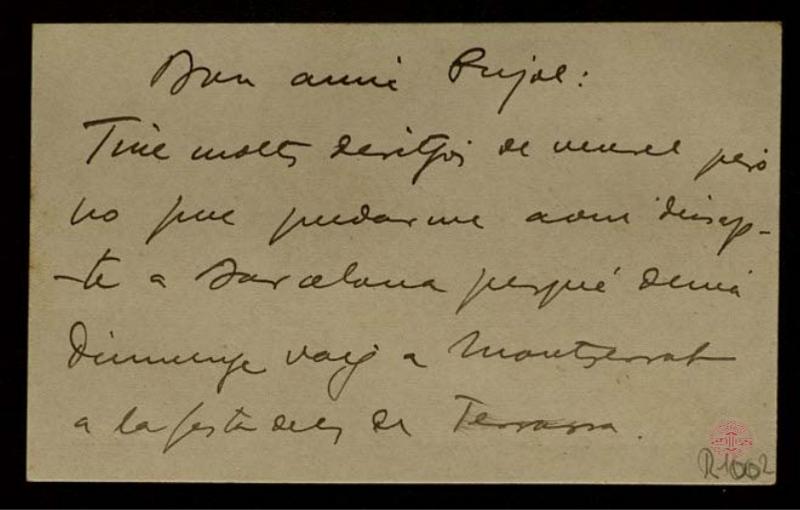 Bon amic Pujol:
Tinc molts desitjos de veurel però
no puc quedarme avui dissap-
-te a Barcelona perqué demá
Diumenge vaig a Montserrat
a la festa dels de Terrassa.
R.1002